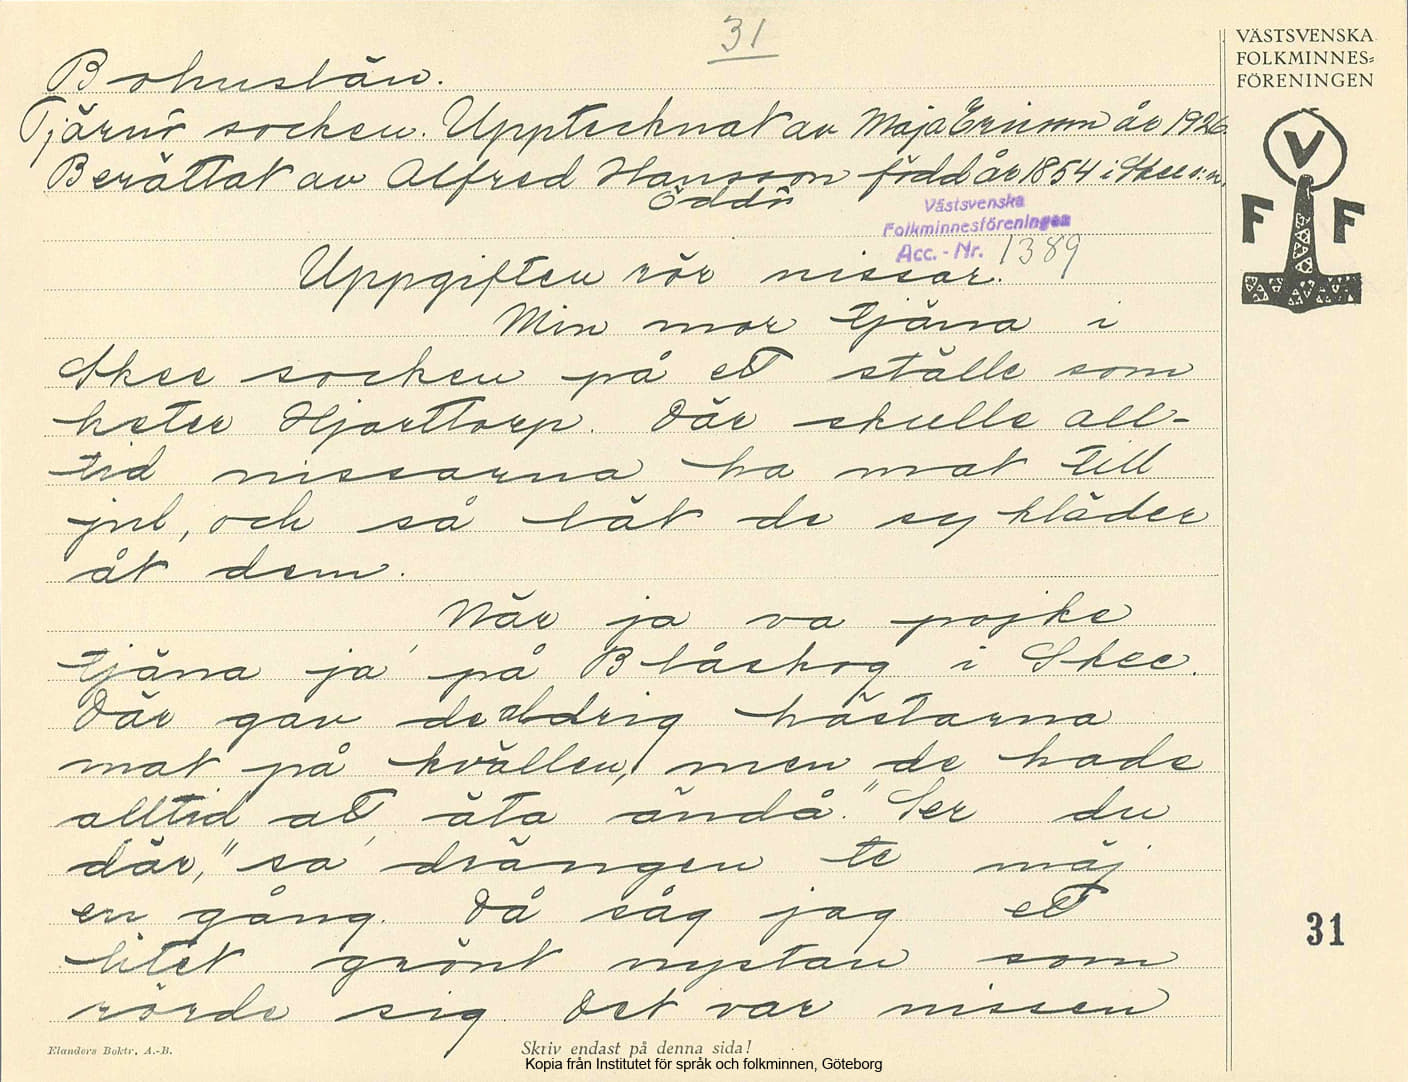 31
VÄSTSVENSKA
FOLKMINNES=
FÖRENINGEN
V
F F
Bohuslän.
Tjärnö socken. Upptecknat av Maja Ericson år 1926.
Berättat av Alfred Hansson född år 1854 i Skee s:n.
Öddö
Västsvenska
Folkminnesföreningen
Acc. - Nr. 1389
Uppgiften rör nissar.
Min mor tjäna i
Skee socken på ett ställe som
heter Hjorttorp. Där skulle all-
tid nissarna ha mat till
jul, och så lät de sy kläder
åt dem.
När ja va pojke
tjäna ja' på Blåskog i Skee.
Där gav de aldrig hästarna
mat på kvällen, men de hade
alltid att äta ändå. "Ser du
där," sa' drängen te mäj
en gång. Då såg jag ett
litet grönt nystan som
rörde sig. Det var nissen
31
Elanders Boktr. A.-B.
Skriv endast på denna sida!
Kopia från Institutet för språk och folkminnen, Göteborg